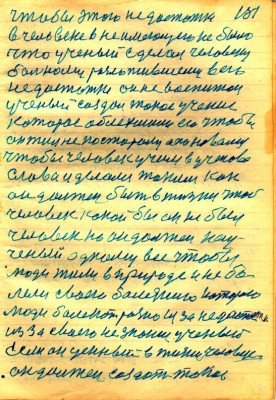 чтобы этого недостатка 151
в человеке в не имеющего не было
что ученый сделал человеку
больному
недостатки он не воспитал
ученый создал такое учение
которое облегчило его чтобы
он этим не посторонили основному
чтобы человек учил в ученого
слова и делали таким как
он должен быть в жизни чтоб
человек какой бы он не был
человек но он должен нау-
ченый одному все чтобы
люди жили в природе и не бо-
лели своего болезнию которою
люди болеют разною из за недостатк
из за своего не знания ученый
если он ценный в жизни человек
он должен создать таков